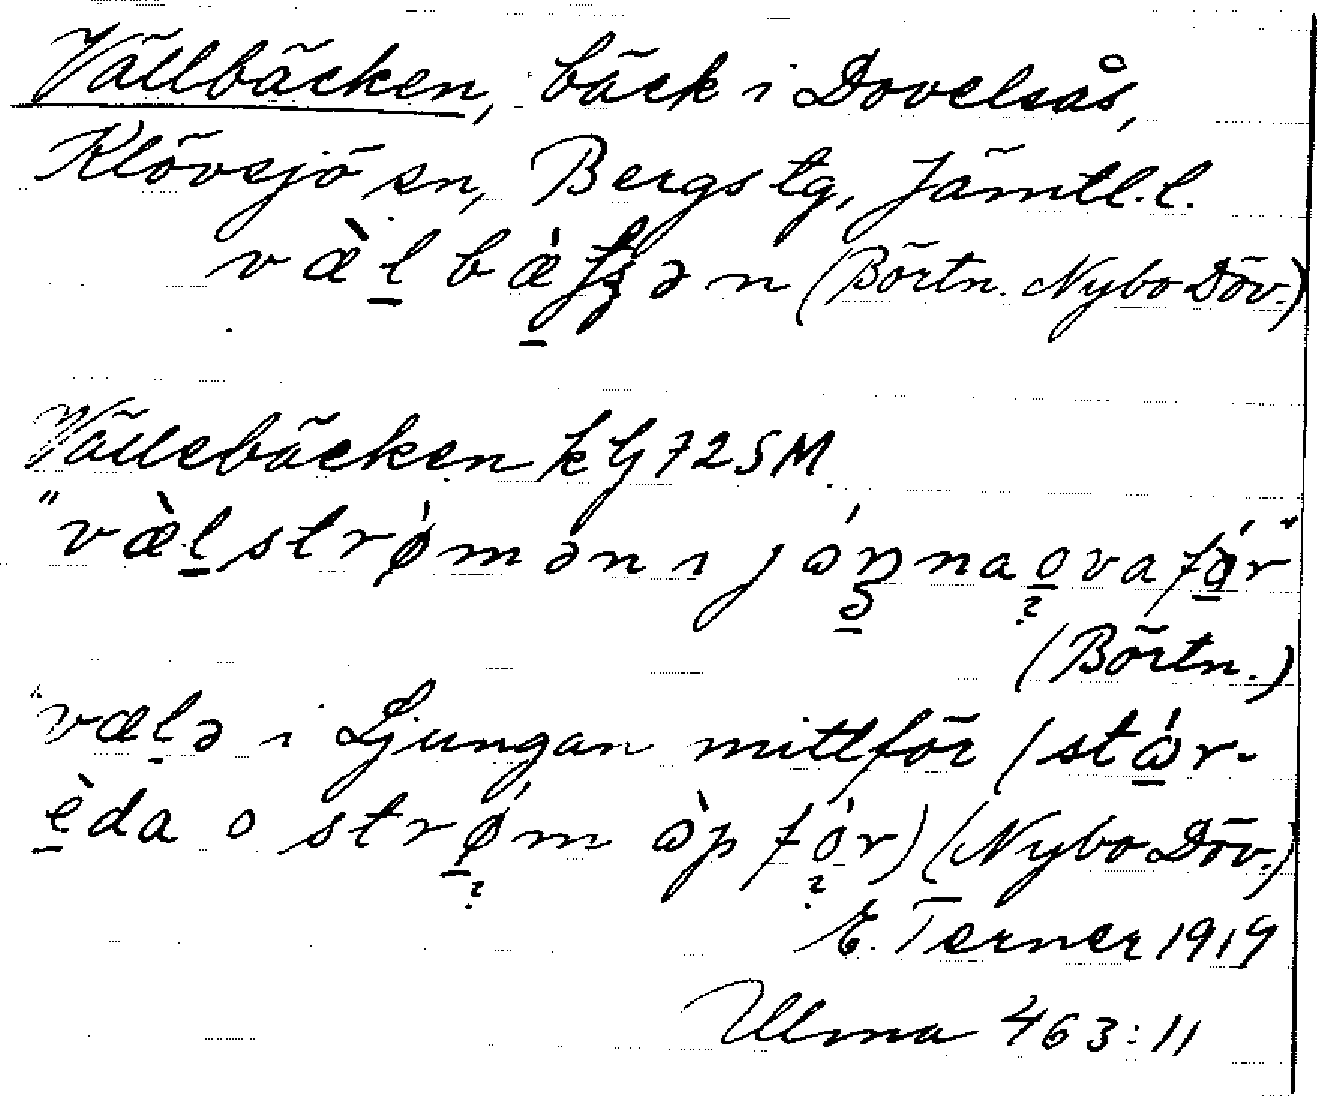 Vällbäcken, bäck i Dovelsås,
Klövsjö sn, Bergs tg, Jämtl.l.
væ̀l bæ̀ ən (Börtn. Nybo Döv.)
Vällebäcken kG 72SM.
"væ̀l strǿmən ı na ova fǿr"
(Börtn.)
"vælə i Ljungan mittför (stɷ́r-
èda o strǿm ɷ̀p fór) (Nybo Döv.)
E. Terner 1919
Ulma 463:11